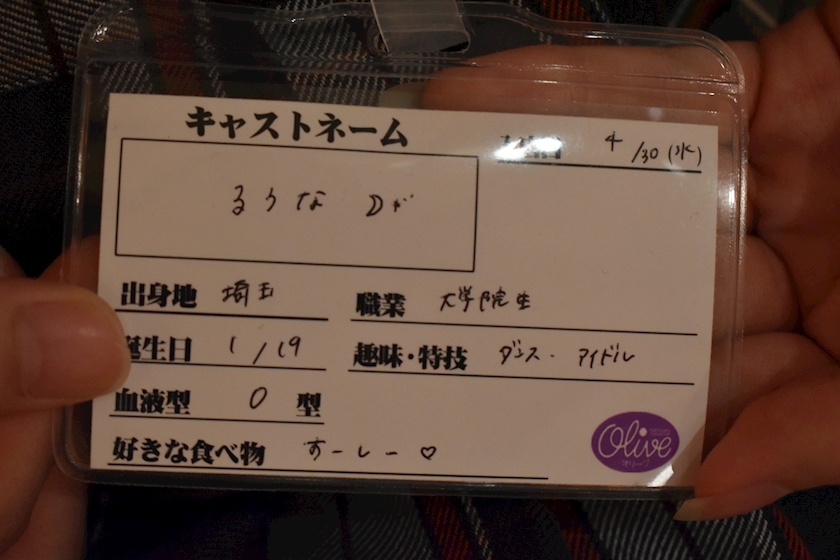 キャストネーム
4/30 (水)
るりな Dゲ
出身地 埼玉
職業 大学院生
誕生日 1/19
趣味・特技 ダンス・アイドル
血液型 O 型
好きな食べ物 すーしー♡
Olive
オリーブ